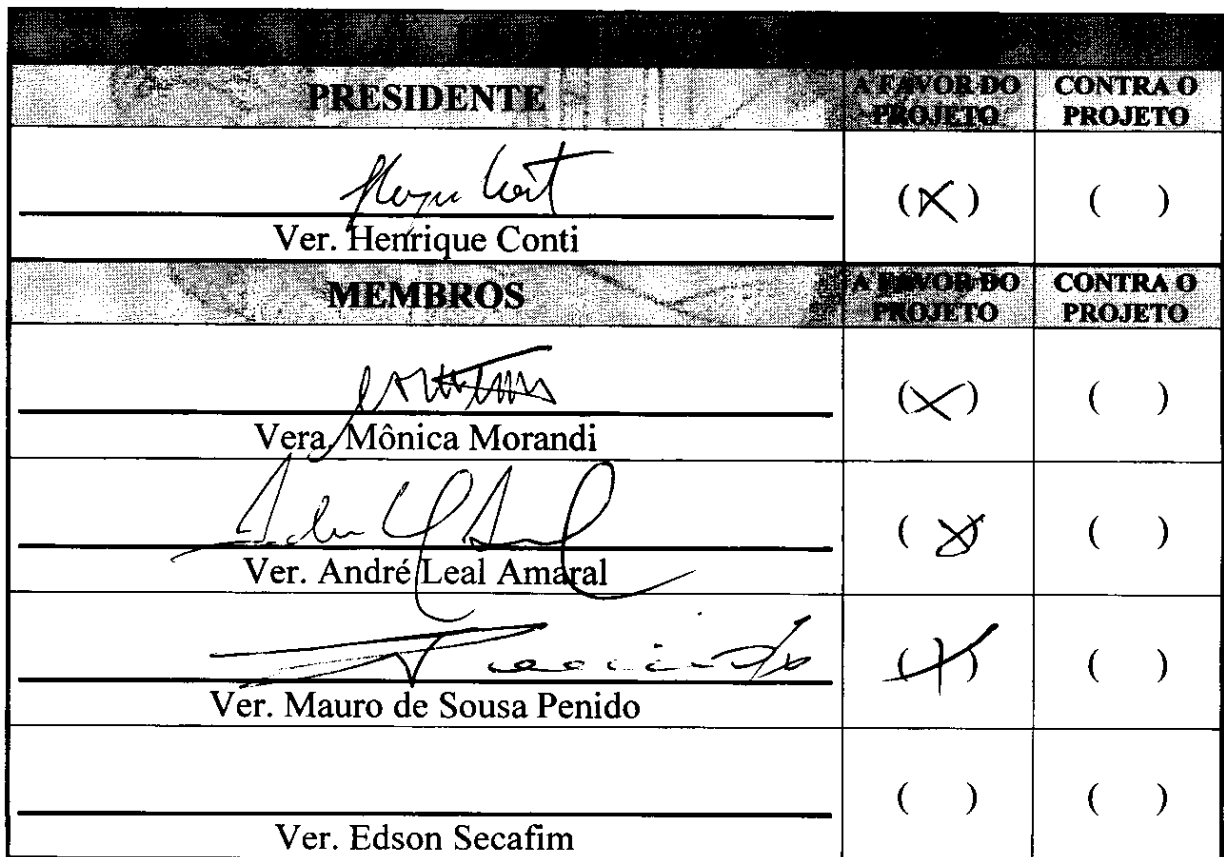 PRESIDENTE A FAVOR DO PROJETO CONTRA O PROJETO
(X) ( )
Ver. Henrique Conti
MEMBROS A FAVOR DO PROJETO CONTRA O PROJETO
(X) ( )
Vera. Mônica Morandi
(X) ( )
Ver. André Leal Amaral
(X) ( )
Ver. Mauro de Sousa Penido
( ) ( )
Ver. Edson Secafim